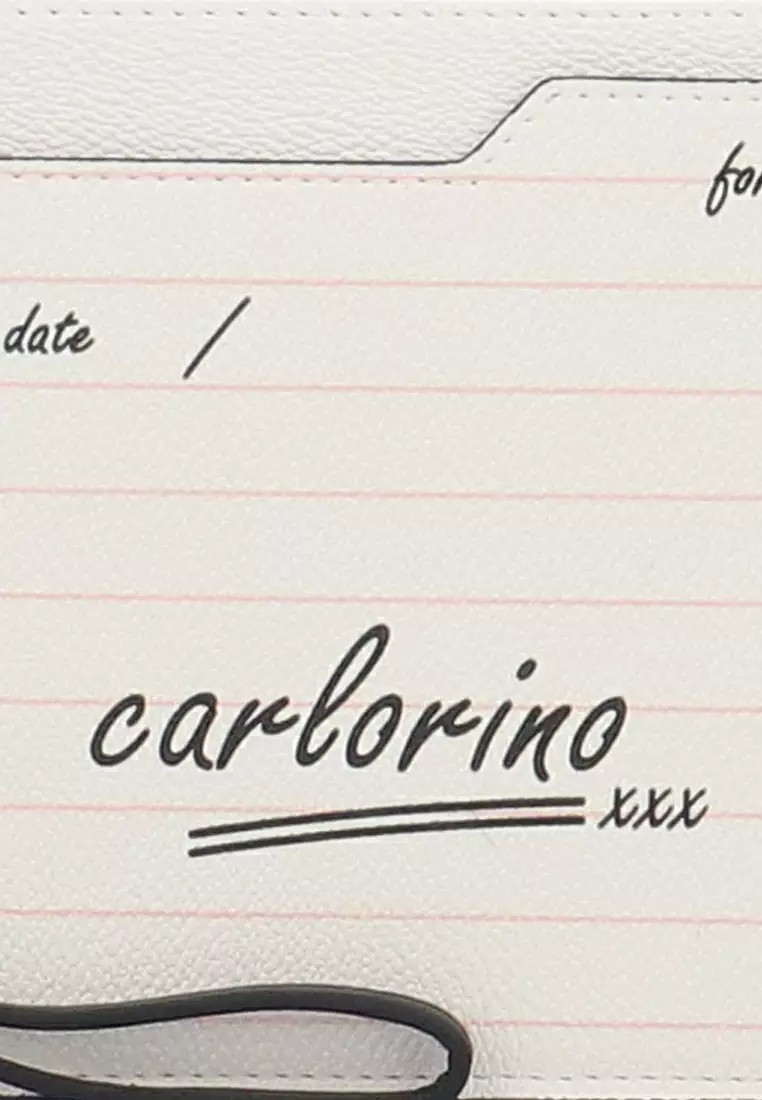 for
date /
carlorino
xxx